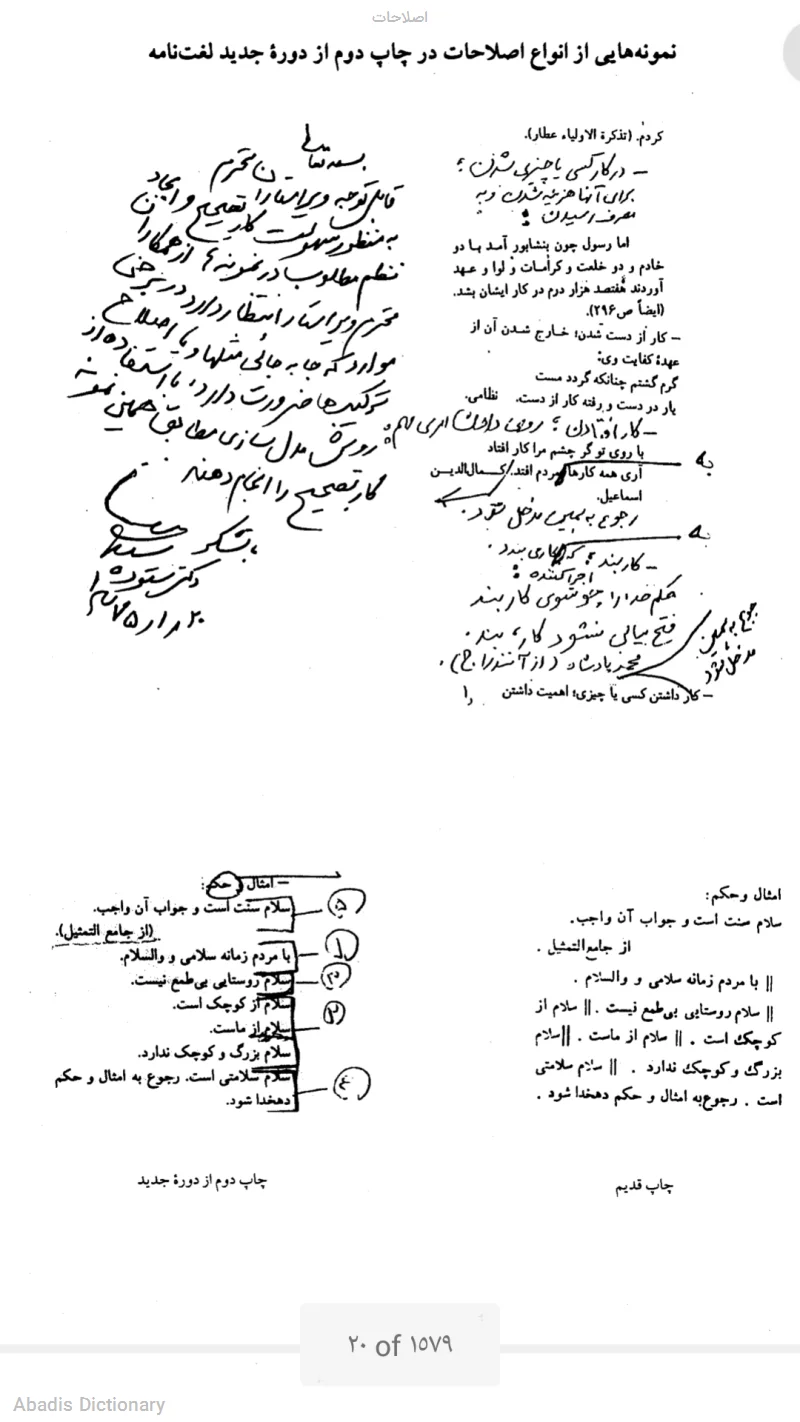 اصلاحات
نمونه‌هایی از انواع اصلاحات در چاپ دوم از دورهٔ جدید لغت‌نامه
کردم. (تذکرة الاولیاء عطار).
– در کار کسی یا چیزی شدن؛
برای آنها هزینه شدن و به
مصرف رسیدن:
اما رسول چون بنشابور آمد با دو
خادم و دو خلعت و کرامات و لوا و عهد
آوردند هفتصد هزار درم در کار ایشان بشد.
(ایضاً ص۲۹۶).
– کار از دست شدن؛ خارج شدن آن از
عهدهٔ کفایت وی:
گرم گشتم چنانکه گردد مست
یار در دست و رفته کار از دست. نظامی.
– کار افتادن؛ روی دادن امری
با روی تو گر چشم مرا کار افتاد
آری همه کارها بمردم افتد. کمال‌الدین
اسماعیل.
رجوع به همین مدخل شود.
– کاربند؛
اجراکننده:
حکم خدا را چو شوی کاربند
فتح بیابی نشود کار، بند.
محمد پادشاه (از آنندراج).
رجوع به همین
مدخل شود
– کار داشتن کسی یا چیزی؛ اهمیت داشتن
بسمه تعالی
قابل توجه ویراستاران محترم
به منظور سهولت کار تصحیح و ایجاد
نظم مطلوب در نمونه‌ها از همکاران
محترم ویراستار انتظار دارد در برخی
موارد که جا به جائی مثلها و یا اصلاح
ترکیبها ضرورت دارد، با استفاده از
روش مدل سازی مطابق همین نمونه
کار تصحیح را انجام دهند
با تشکر
دکتر ستوده
امثال وحکم:
سلام سنت است و جواب آن واجب.
از جامع‌التمثیل .
|| با مردم زمانه سلامی و والسلام .
|| سلام روستایی بی‌طمع نیست . || سلام از
کوچك است . || سلام از ماست . ||سلام
بزرگ و کوچك ندارد . || سلام سلامتی
است . رجوع‌به امثال و حکم دهخدا شود .
چاپ قدیم
– امثال و حکم:
سلام سنت است و جواب آن واجب.
(از جامع التمثیل).
با مردم زمانه سلامی و والسلام.
سلام روستایی بی‌طمع نیست.
سلام از کوچک است.
سلام از ماست.
سلام بزرگ و کوچک ندارد.
سلام سلامتی است. رجوع به امثال و حکم
دهخدا شود.
چاپ دوم از دورهٔ جدید
۲۰ of ۱۵۷۹
Abadis Dictionary